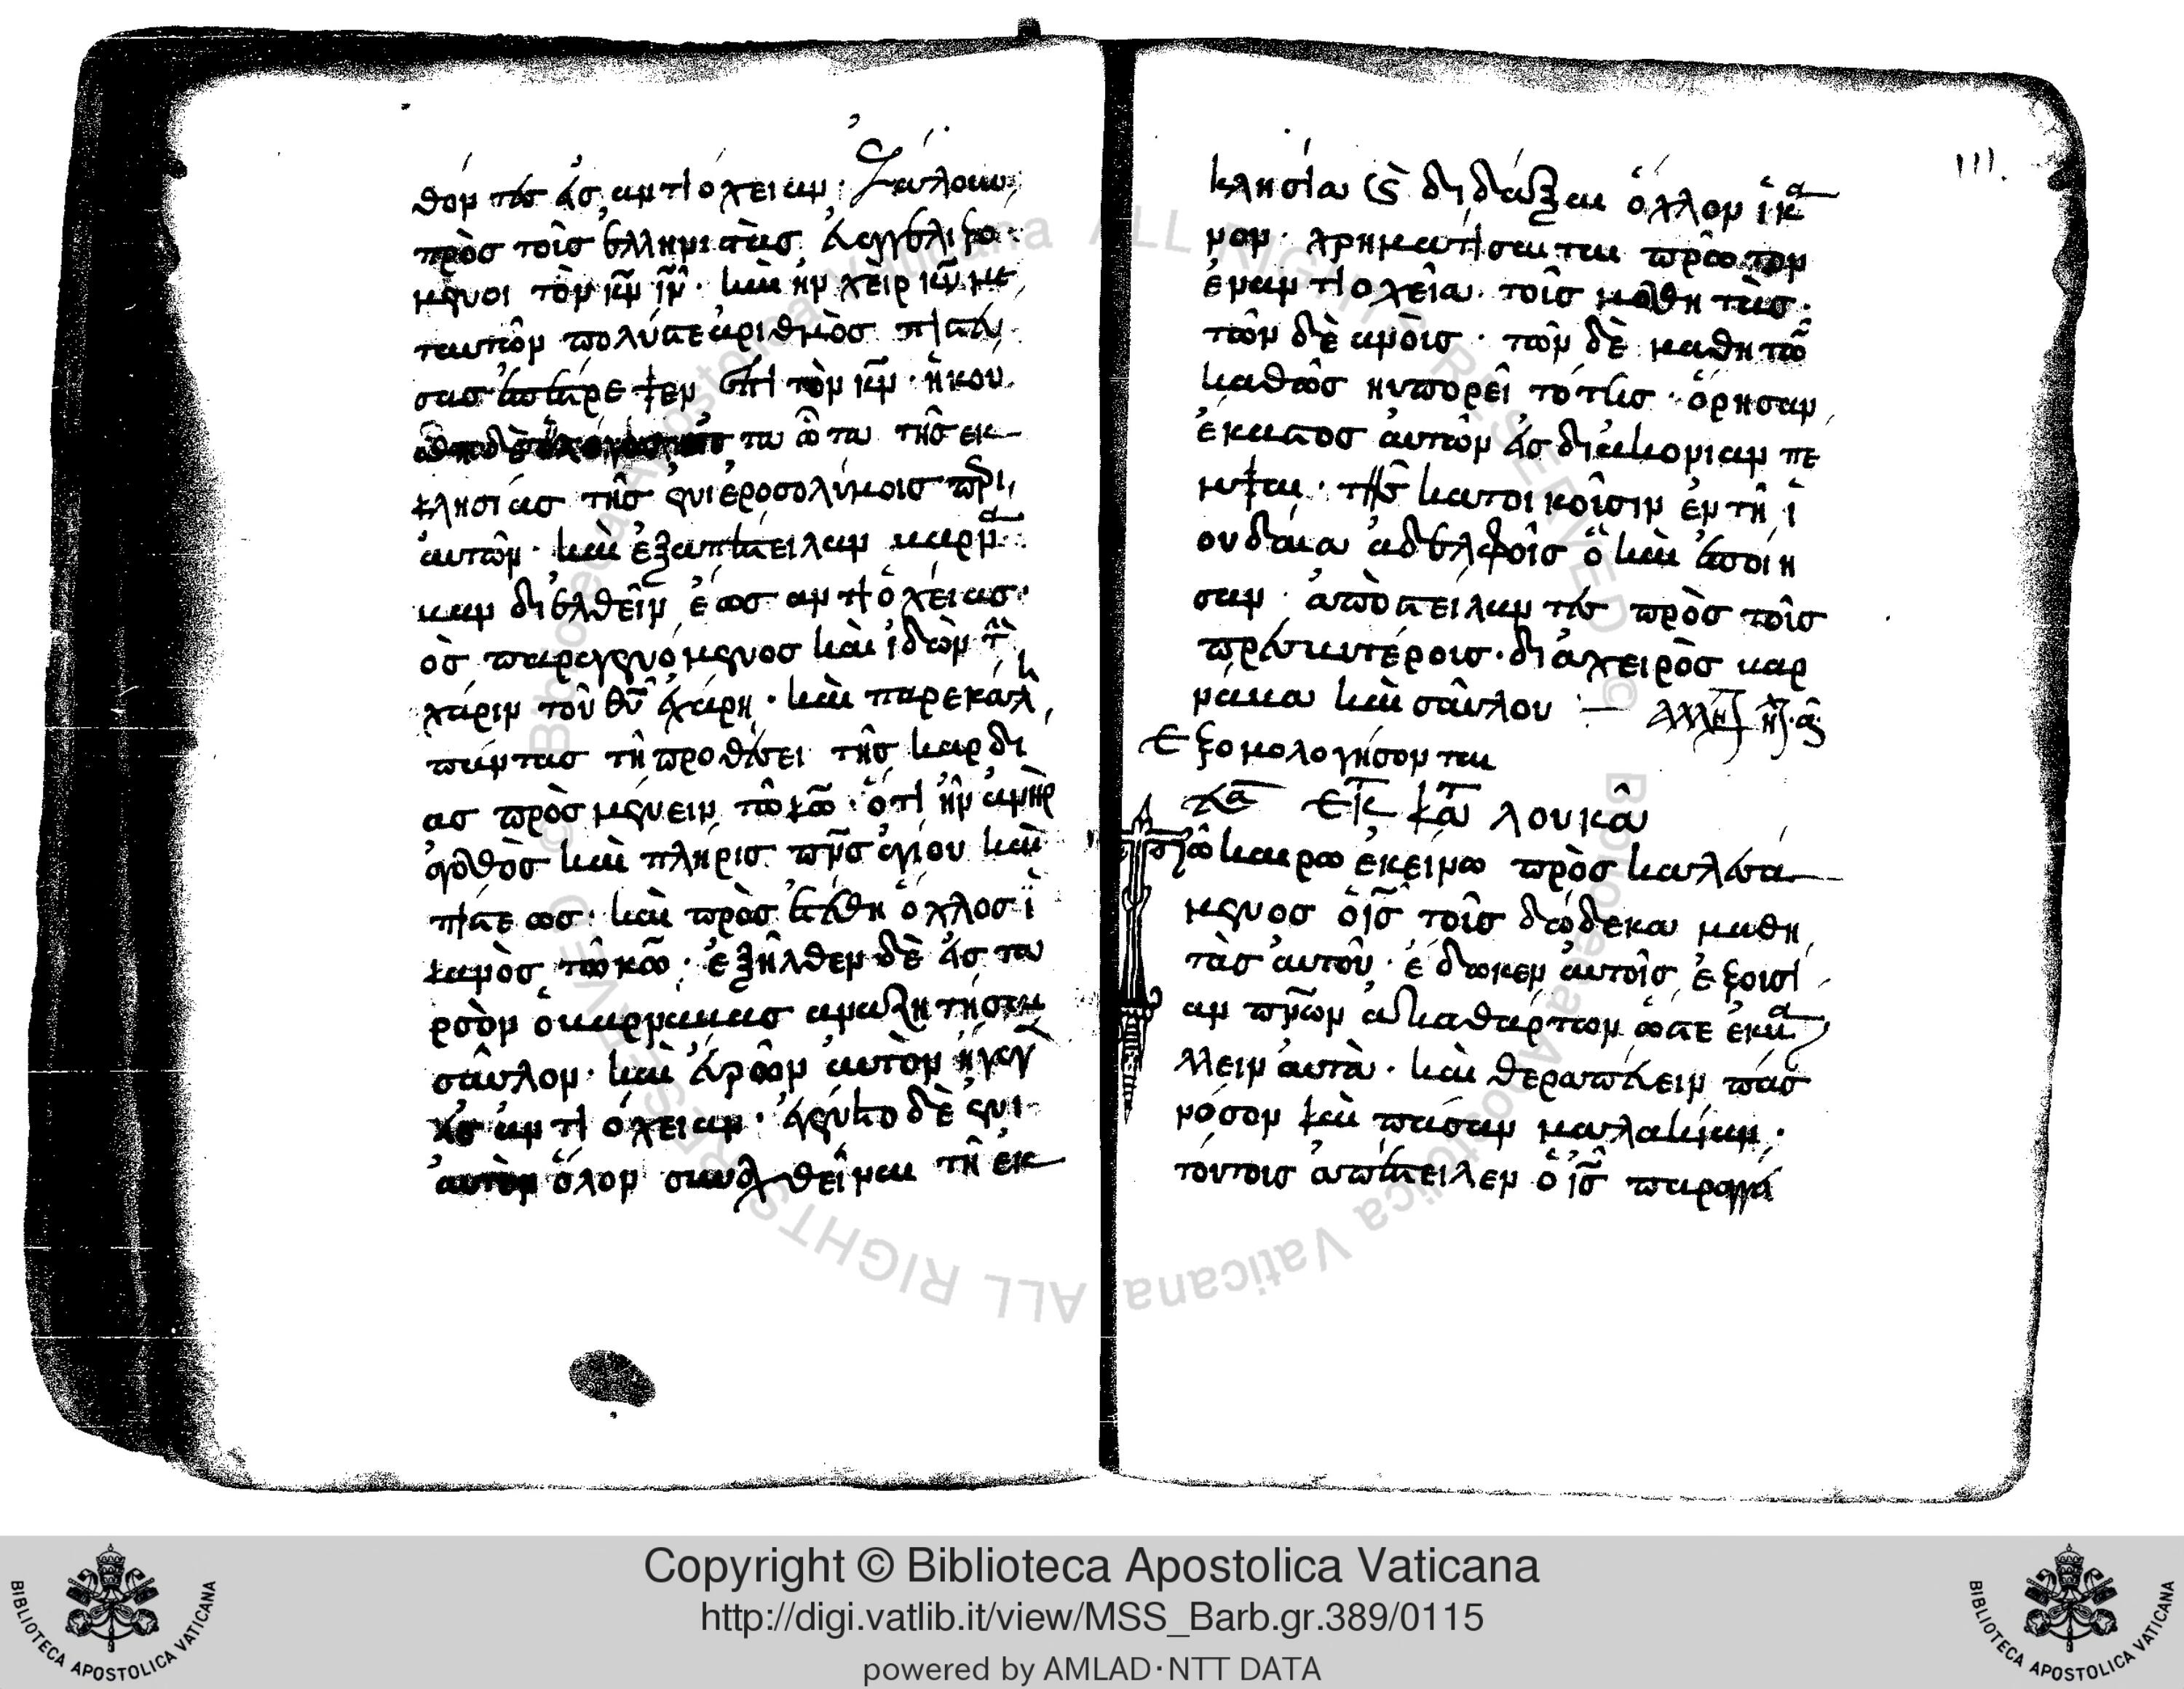 θόντες εἰς ἀντιόχειαν· ἐλάλουν
πρὸς τοῖς ἑλληνιστὰς εὐαγγελιζό
μενοι τὸν κν ιν· καὶ ἦν χεὶρ κυ με
τ αυτῶν πολύστε ἀριθμὸς πιστεύ
σας ἐπέστρεψεν ἐπὶ τὸν κν· ἠκού
τα ὦτα τῆς εκ
κλησίας τῆς ἐν ιεροσολύμοις περι
αυτῶν· καὶ ἐξαπέστειλαν βαρνα
βαν διελθεῖν ἑως αντιοχείας·
ὃς παραγενόμενος καὶ ἰδὼν τὴν
χάριν τοῦ θυ ἐχάρη· καὶ παρεκάλ
πάντας τῆ προθέσει τῆς καρδι
ας προσμένειν τῶ κω· ὅτι ἦν ἀνὴρ
ἀγαθὸς καὶ πλήρις πνς ἁγίου καὶ
πίστεως· καὶ προσετέθη ὄχλος ἱ
κανὸς τῶ κω· ἐξῆλθεν δὲ εἰς τα
ρσὸν ὁ βαρνάβας αναζητήσαι
σαῦλον· καὶ εὑρῶν αὐτὸν ἤγαγεν
εἰς ἀντιόχειαν· ἐγένετο δὲ ἐνι
αυτὸν ὅλον συναχθεῖναι τῆ ἐκ
111.
κλησία καὶ διδάξαι ὄχλον ἱκα
νον· χρηματίσαι τε πρῶτον
ἐν αντιοχεῖα τοῖς μαθητὰς·
τῶν δὲ ανοις· τῶν δὲ μαθητῶ
καθὼς ηυπορεῖτό τις· ὅρησαν
ἕκαστος αὐτῶν εἰς διακονίαν πε
μψαι· τοῖς κατοικοῖσιν ἐν τῆ ἰ
ουδαία ἀδελφοῖς ὃ καὶ ἐποίη
σαν· ἀποστείλαντες πρὸς τοῖς
πρεσβυτέροις· διὰ χειρὸς βαρ
νάβα καὶ σαύλου
Εξομολογήσονται
Ευα Εκ κατ λουκᾶ
Τῶ καιρω ἐκείνω προσκαλεσά
μενος ὁ ις τοῖς δώδεκα μαθη
τὰς αὐτοῦ· ἔδωκεν αὐτοῖς ἐξουσί
αν πνων ἀκαθάρτων ὥστε ἐκβά
λλειν αὐτὰ· καὶ θεραπεύειν πάσ
νόσον καὶ πάσαν μαλακίαν·
τούτοις ἀπέστειλεν ὁ ις παραγγεί
Copyright © Biblioteca Apostolica Vaticana
http://digi.vatlib.it/view/MSS_Barb.gr.389/0115
powered by AMLAD·NTT DATA
BIBLIOTECA APOSTOLICA VATICANA
BIBLIOTECA APOSTOLICA VATICANA